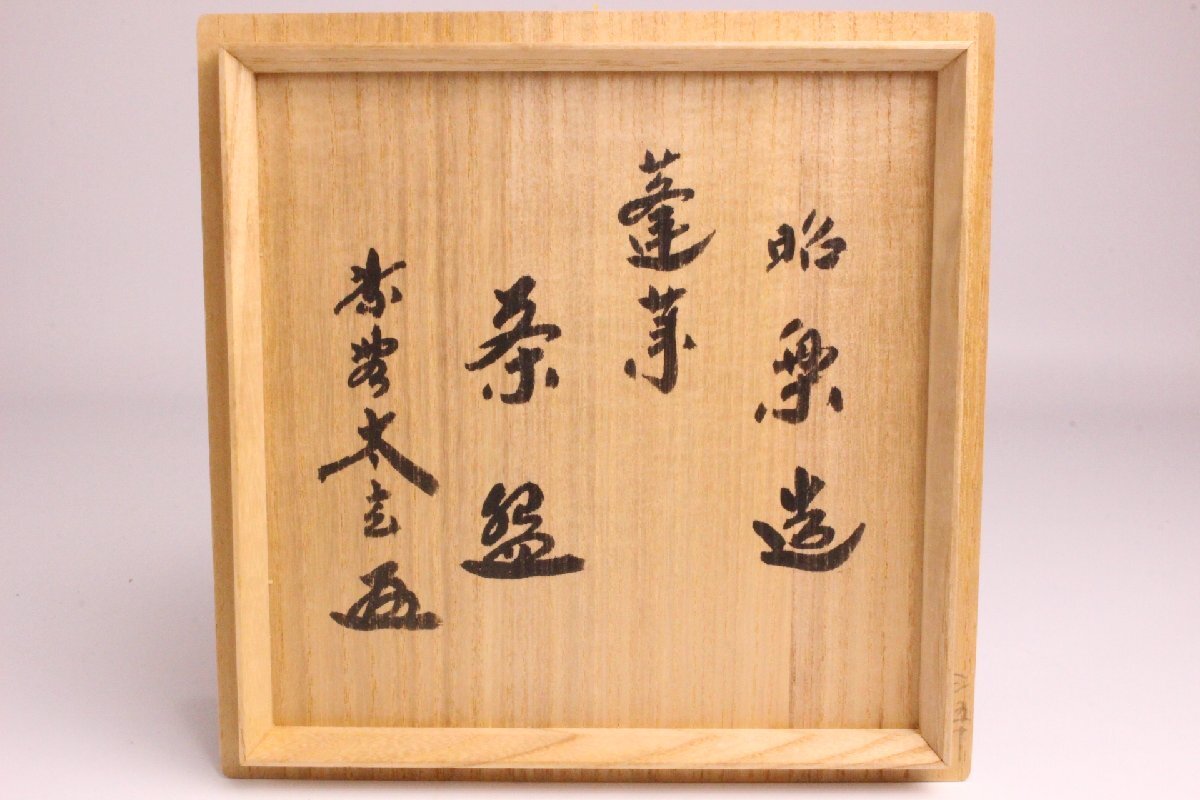 昭楽造
蓬莱
茶盌
紫野太玄